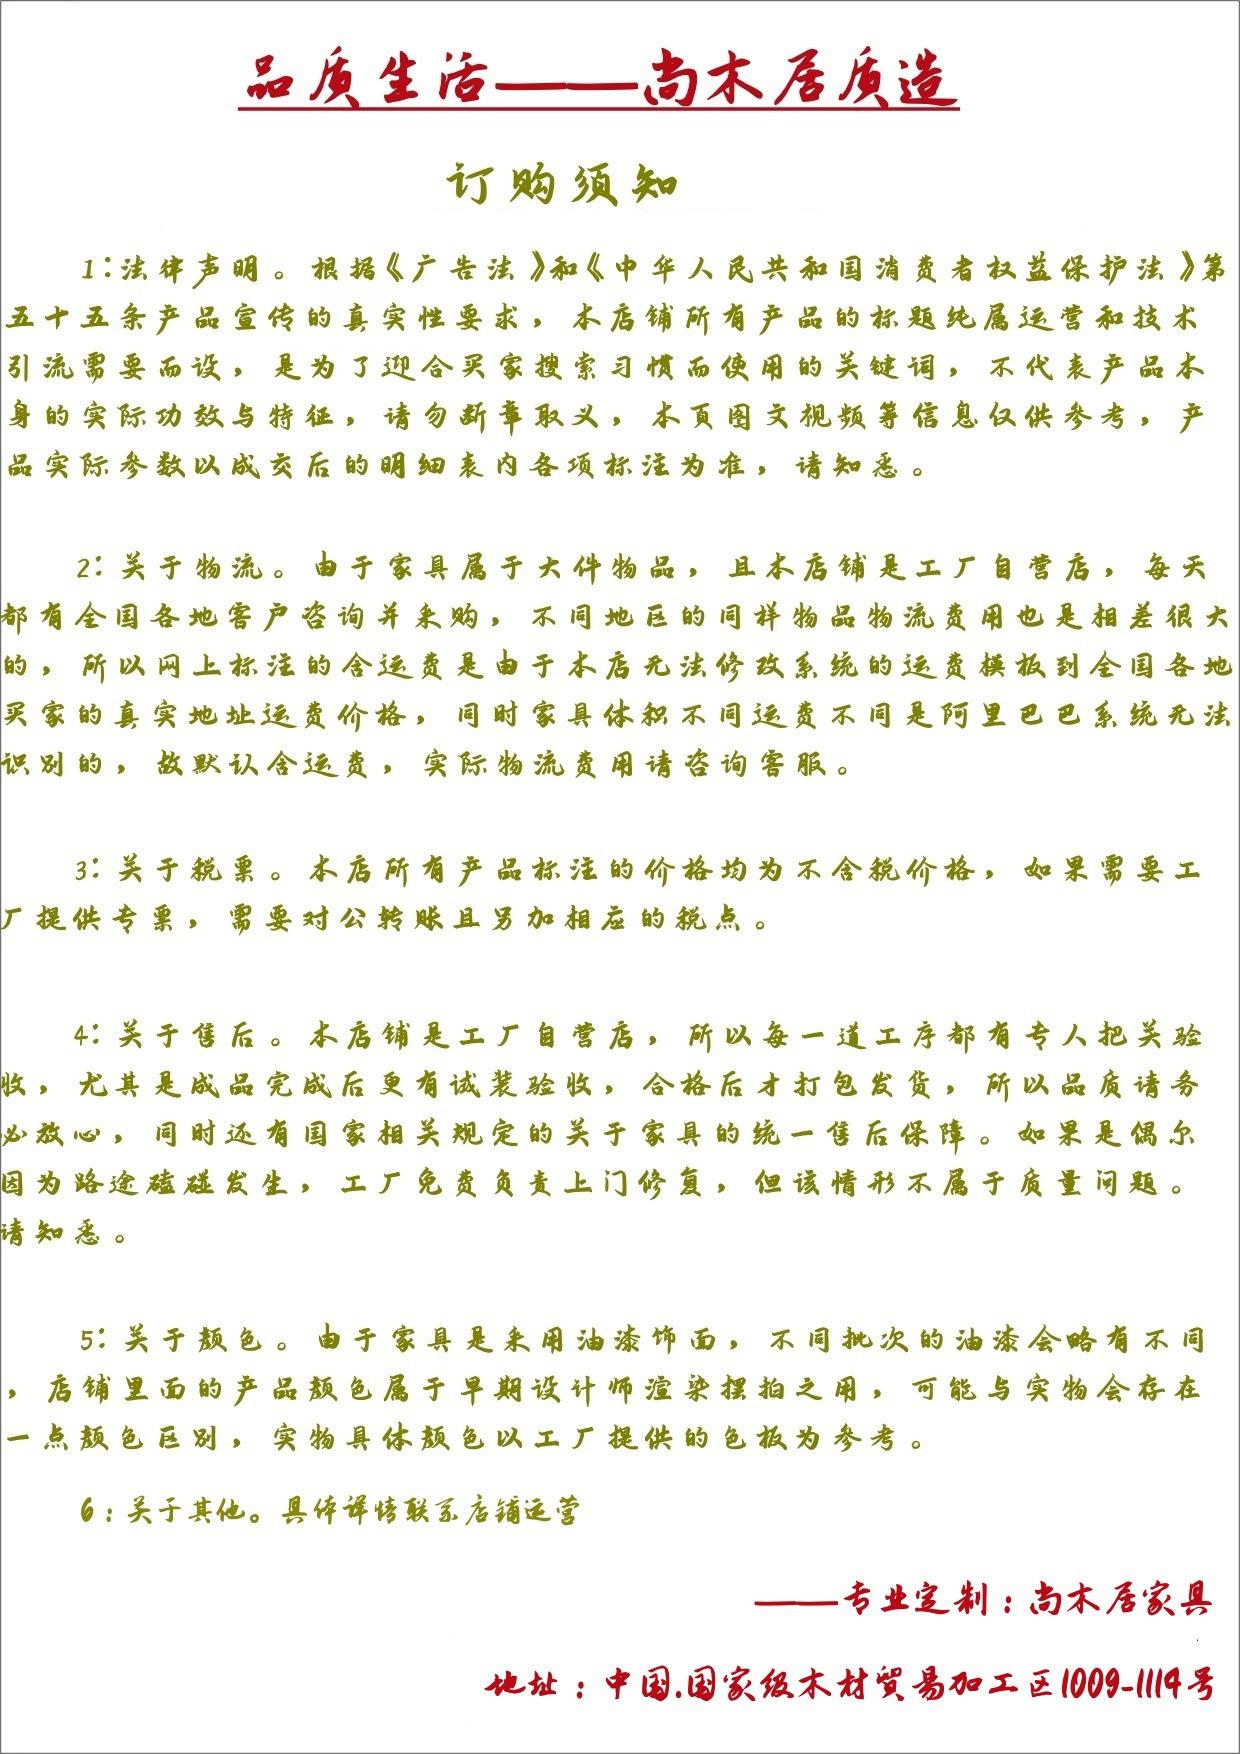 品质生活——尚木居质造
订购须知
1:法律声明。根据《广告法》和《中华人民共和国消费者权益保护法》第
五十五条产品宣传的真实性要求，本店铺所有产品的标题纯属运营和技术
引流需要而设，是为了迎合买家搜索习惯而使用的关键词，不代表产品本
身的实际功效与特征，请勿断章取义，本页图文视频等信息仅供参考，产
品实际参数以成交后的明细表内各项标注为准，请知悉。
2:关于物流。由于家具属于大件物品，且本店铺是工厂自营店，每天
都有全国各地客户咨询并采购，不同地区的同样物品物流费用也是相差很大
的，所以网上标注的含运费是由于本店无法修改系统的运费模板到全国各地
买家的真实地址运费价格，同时家具体积不同运费不同是阿里巴巴系统无法
识别的，故默认含运费，实际物流费用请咨询客服。
3:关于税票。本店所有产品标注的价格均为不含税价格，如果需要工
厂提供专票，需要对公转账且另加相应的税点。
4:关于售后。本店铺是工厂自营店，所以每一道工序都有专人把关验
收，尤其是成品完成后更有试装验收，合格后才打包发货，所以品质请务
必放心，同时还有国家相关规定的关于家具的统一售后保障。如果是偶尔
因为路途磕碰发生，工厂免费负责上门修复，但该情形不属于质量问题。
请知悉。
5:关于颜色。由于家具是采用油漆饰面，不同批次的油漆会略有不同
，店铺里面的产品颜色属于早期设计师渲染摆拍之用，可能与实物会存在
一点颜色区别，实物具体颜色以工厂提供的色板为参考。
6:关于其他。具体详情联系店铺运营
——专业定制:尚木居家具
地址:中国.国家级木材贸易加工区1009-1114号